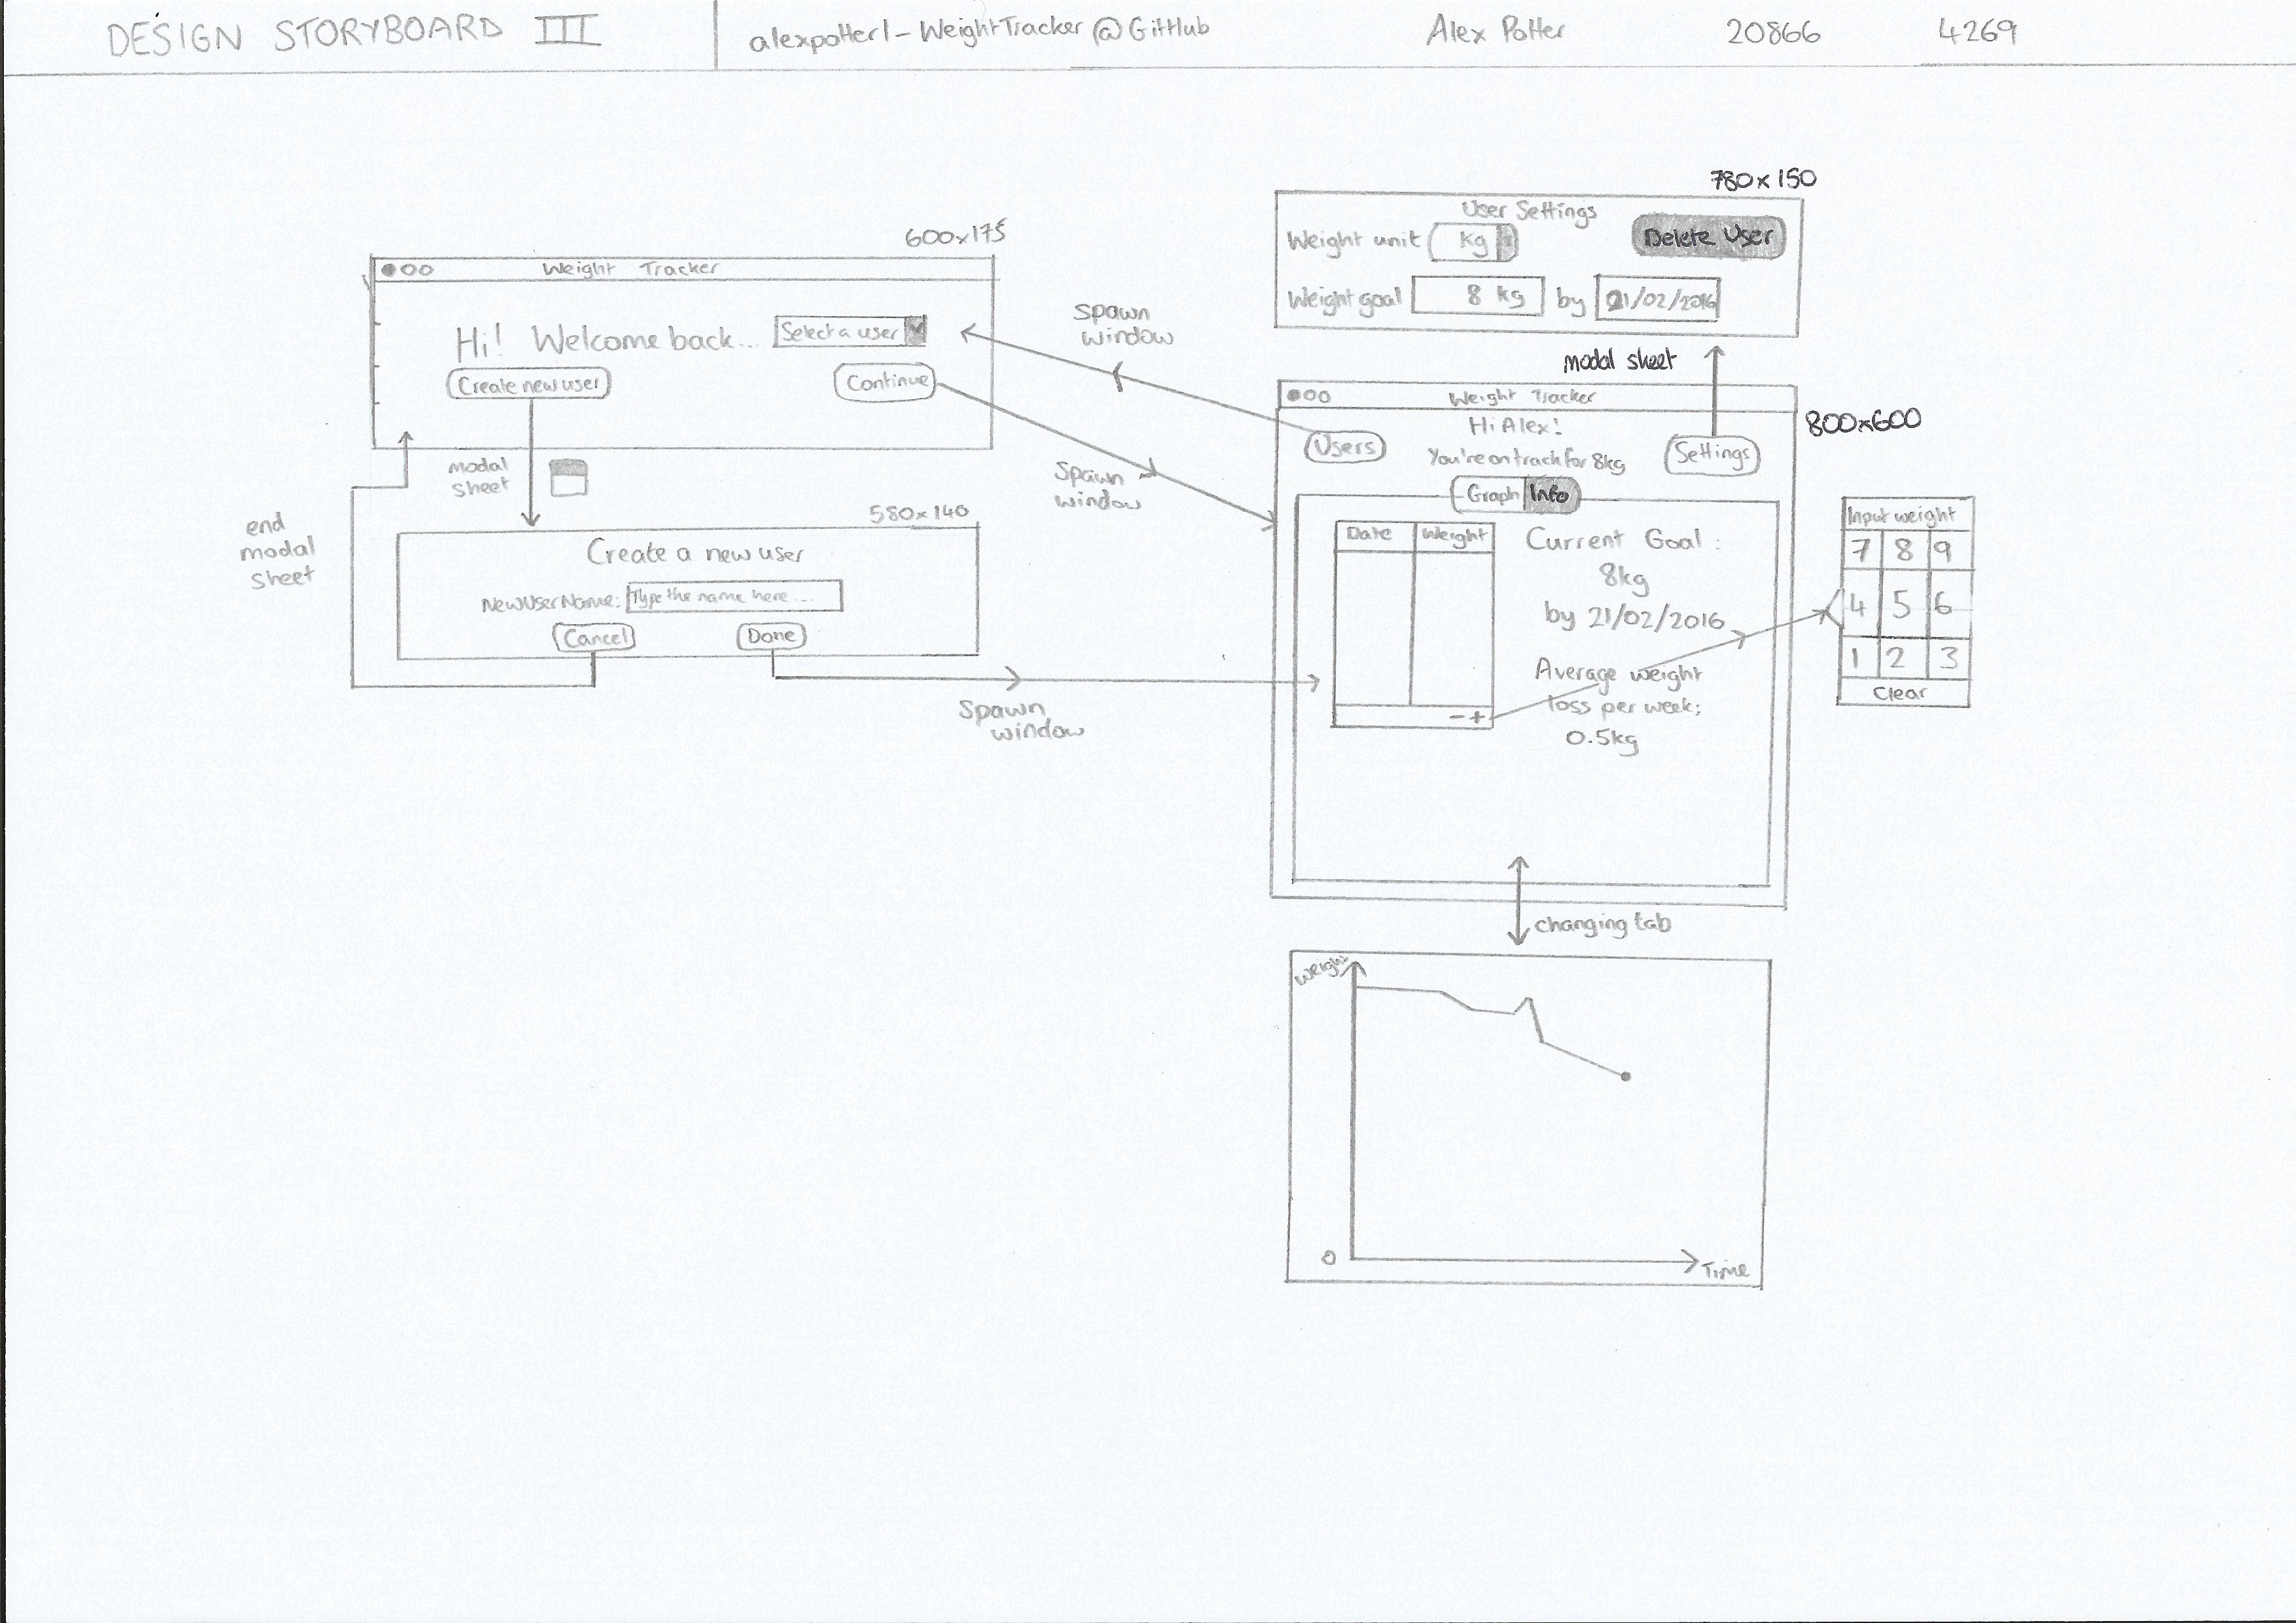 DESIGN STORYBOARD III
alexpotter1-WeightTracker@GitHub
Alex Potter
20866
4269
600x175
Weight Tracker
Hi! Welcome back...
Select a user
Create new user
Continue
modal
sheet
end
modal
sheet
580x140
Create a new user
New User Name:
Type the name here...
Cancel
Done
Spawn
window
Spawn
window
Spawn
window
780x150
User Settings
Weight unit
kg
Delete User
Weight goal
8 kg
by
21/02/2016
modal sheet
800x600
Weight Tracker
Hi Alex!
Users
You're on track for 8kg
Settings
Graph
Info
Date
Weight
-+
Current Goal:
8kg
by 21/02/2016
Average weight
loss per week:
0.5kg
Input weight
7 8 9
4 5 6
1 2 3
Clear
changing tab
Weight
0
Time